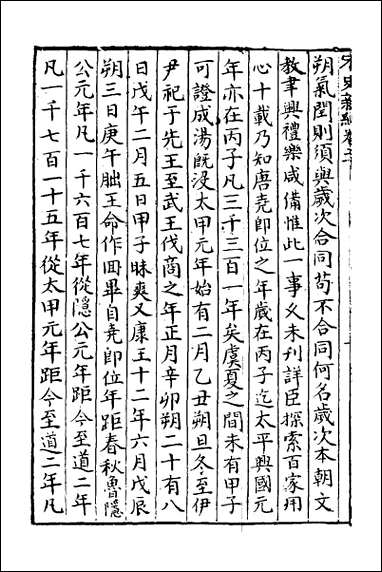 朔氣閏則須與歲次合同苟不合同何名歲次本朝文
教聿興禮樂咸備惟此一事久未刊詳臣探索百家用
心十載乃知唐堯即位之年歲在丙子迄太平興國元
年亦在丙子凡三千三百一年矣虞夏之間未有甲子
可證成湯既沒太甲元年始有二月乙丑朔旦冬至伊
尹祀于先王至武王伐商之年正月辛卯朔二十有八
日戊午二月五日甲子昧爽又康王十二年六月戊辰
朔三日庚午朏王命作冊畢自堯即位年距春秋魯隱
公元年凡一千六百七年從隱公元年距今至道二年
凡一千七百一十五年從太甲元年距今至道二年凡